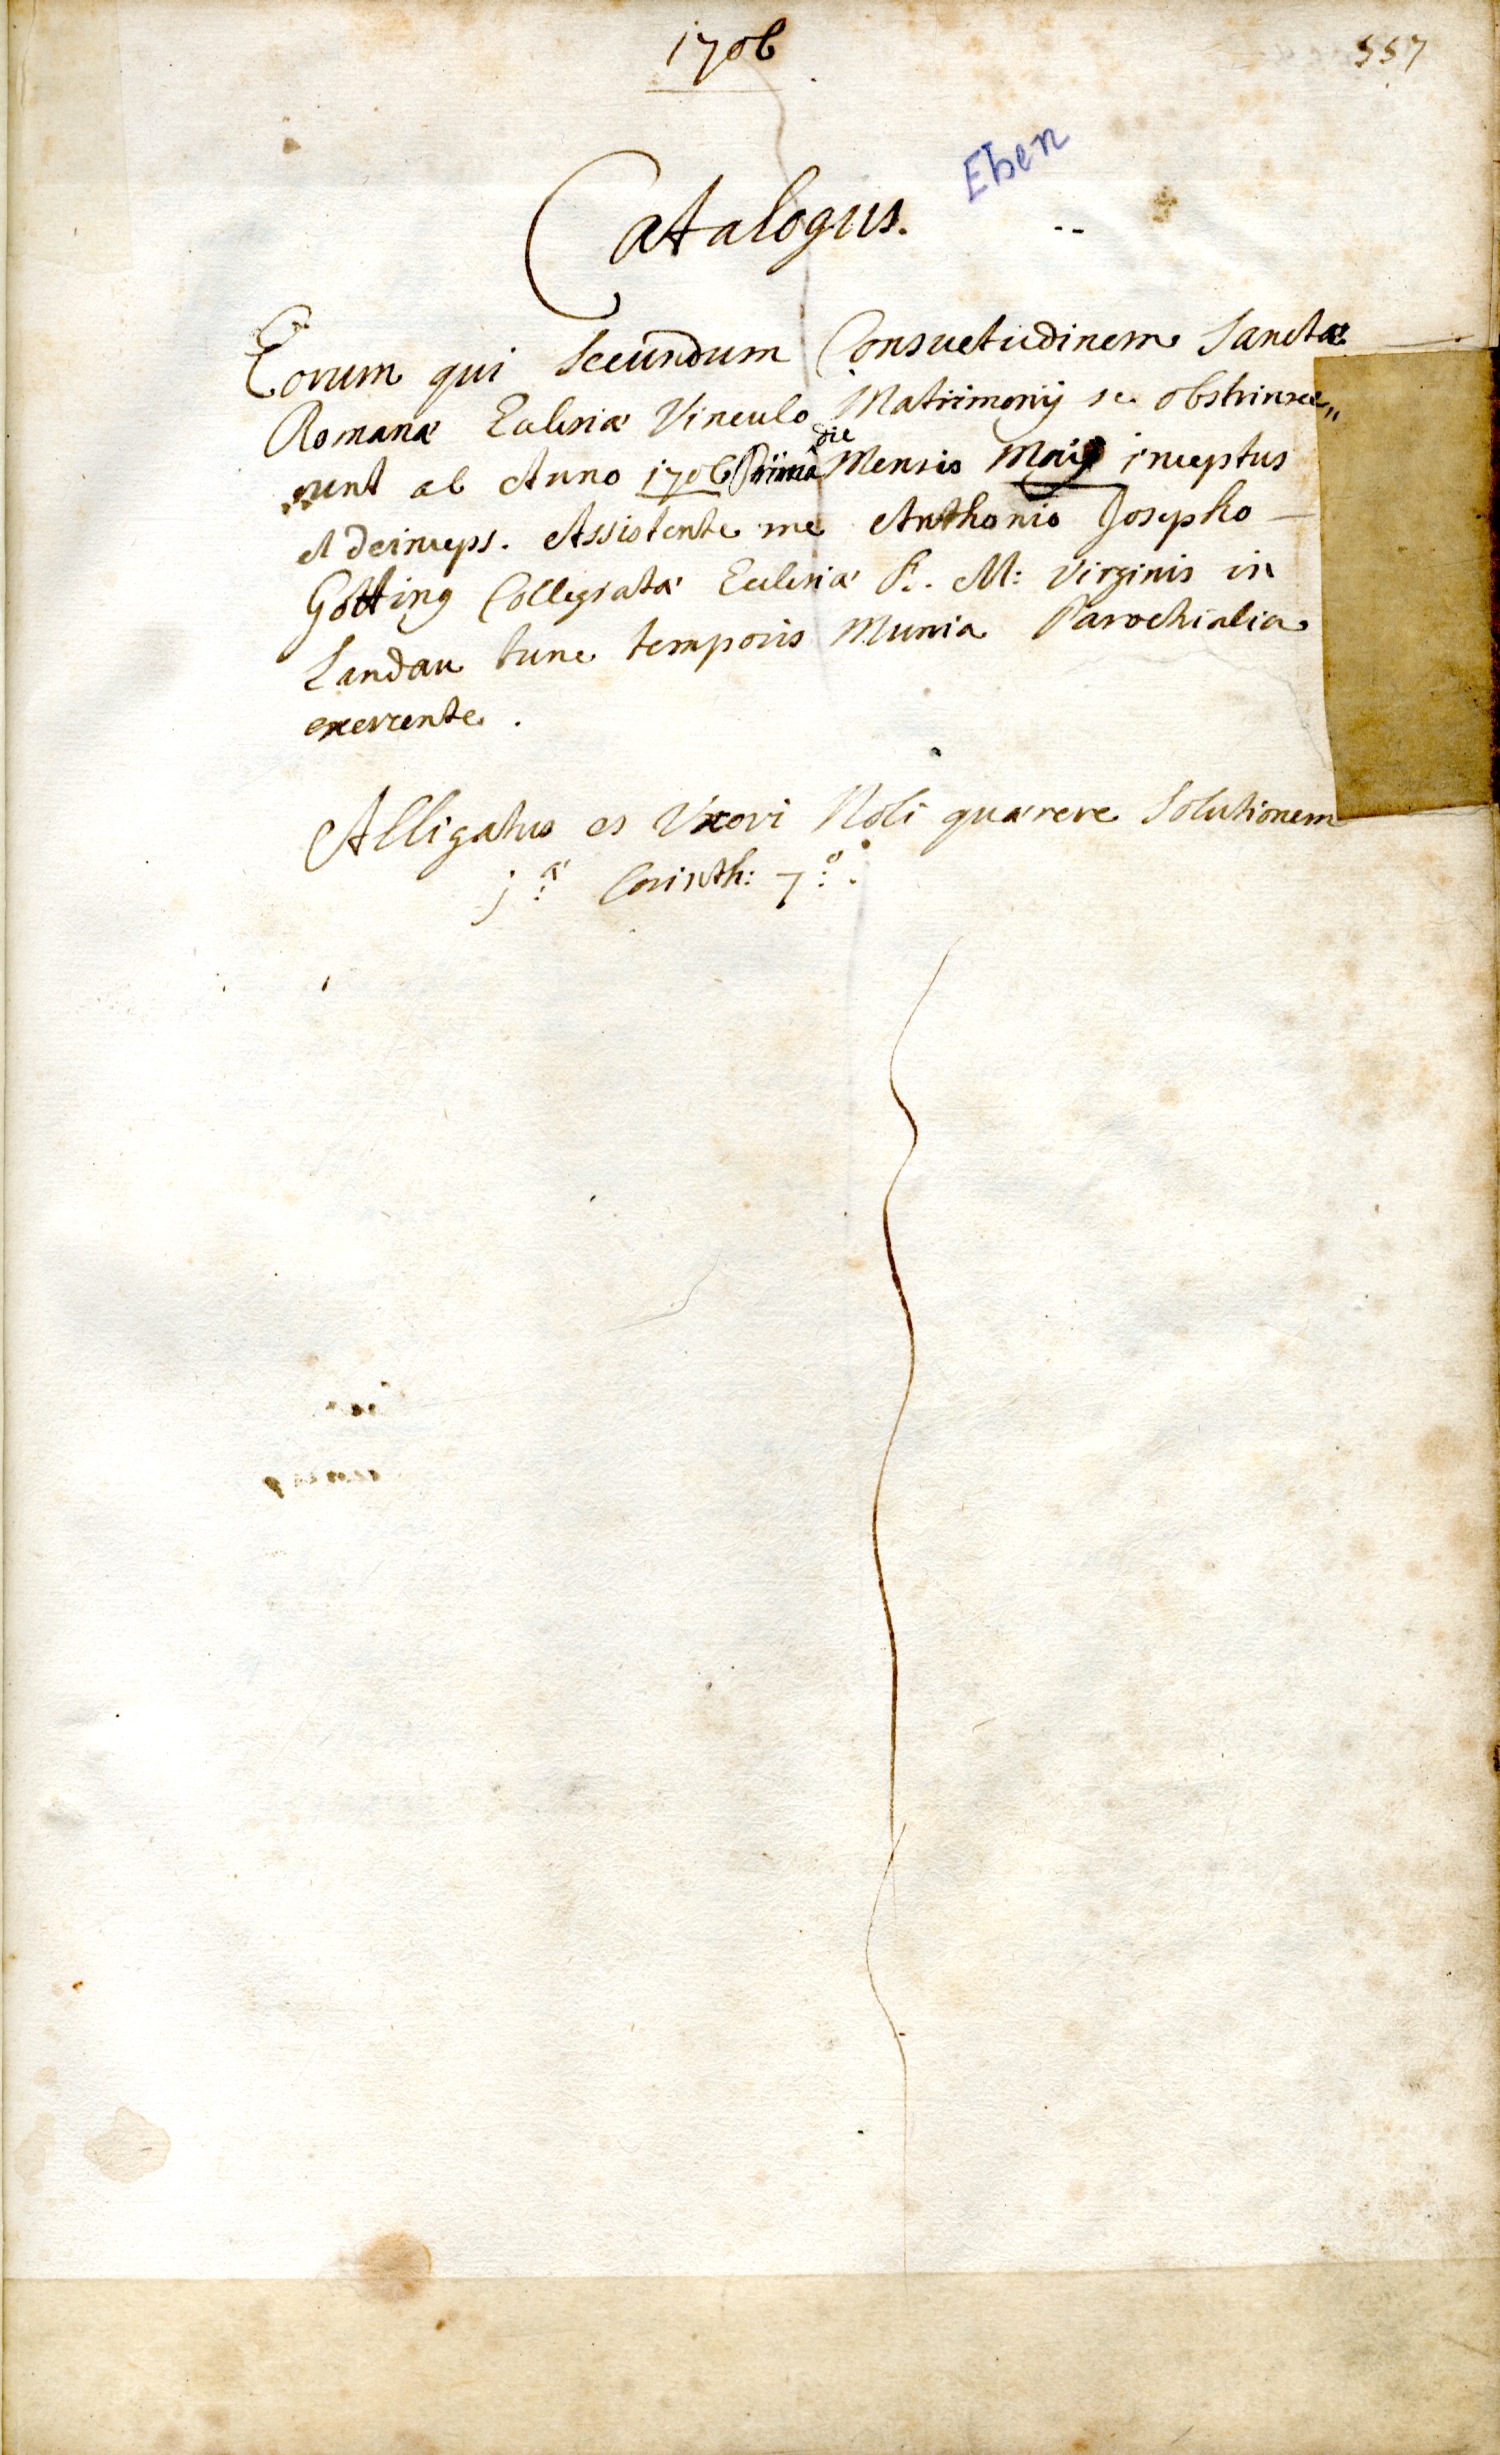 1706
557
Ehen
Catalogus.
Eorum qui secundum Consuetudinem Sanctæ
Romanæ Ecclesiæ Vinculo Matrimonij se obstrinxe„
runt ab Anno 1706 Prima die Mensis Maij inceptus
et deinceps. Assistente me Anthonio Josepho
Götting Collegiatæ Ecclesiæ B. M: Virginis in
Landau tunc temporis Munia Parochialia
exercente.
Alligatus es Uxori Noli quærere Solutionem
1.ª Corinth: 7.º.